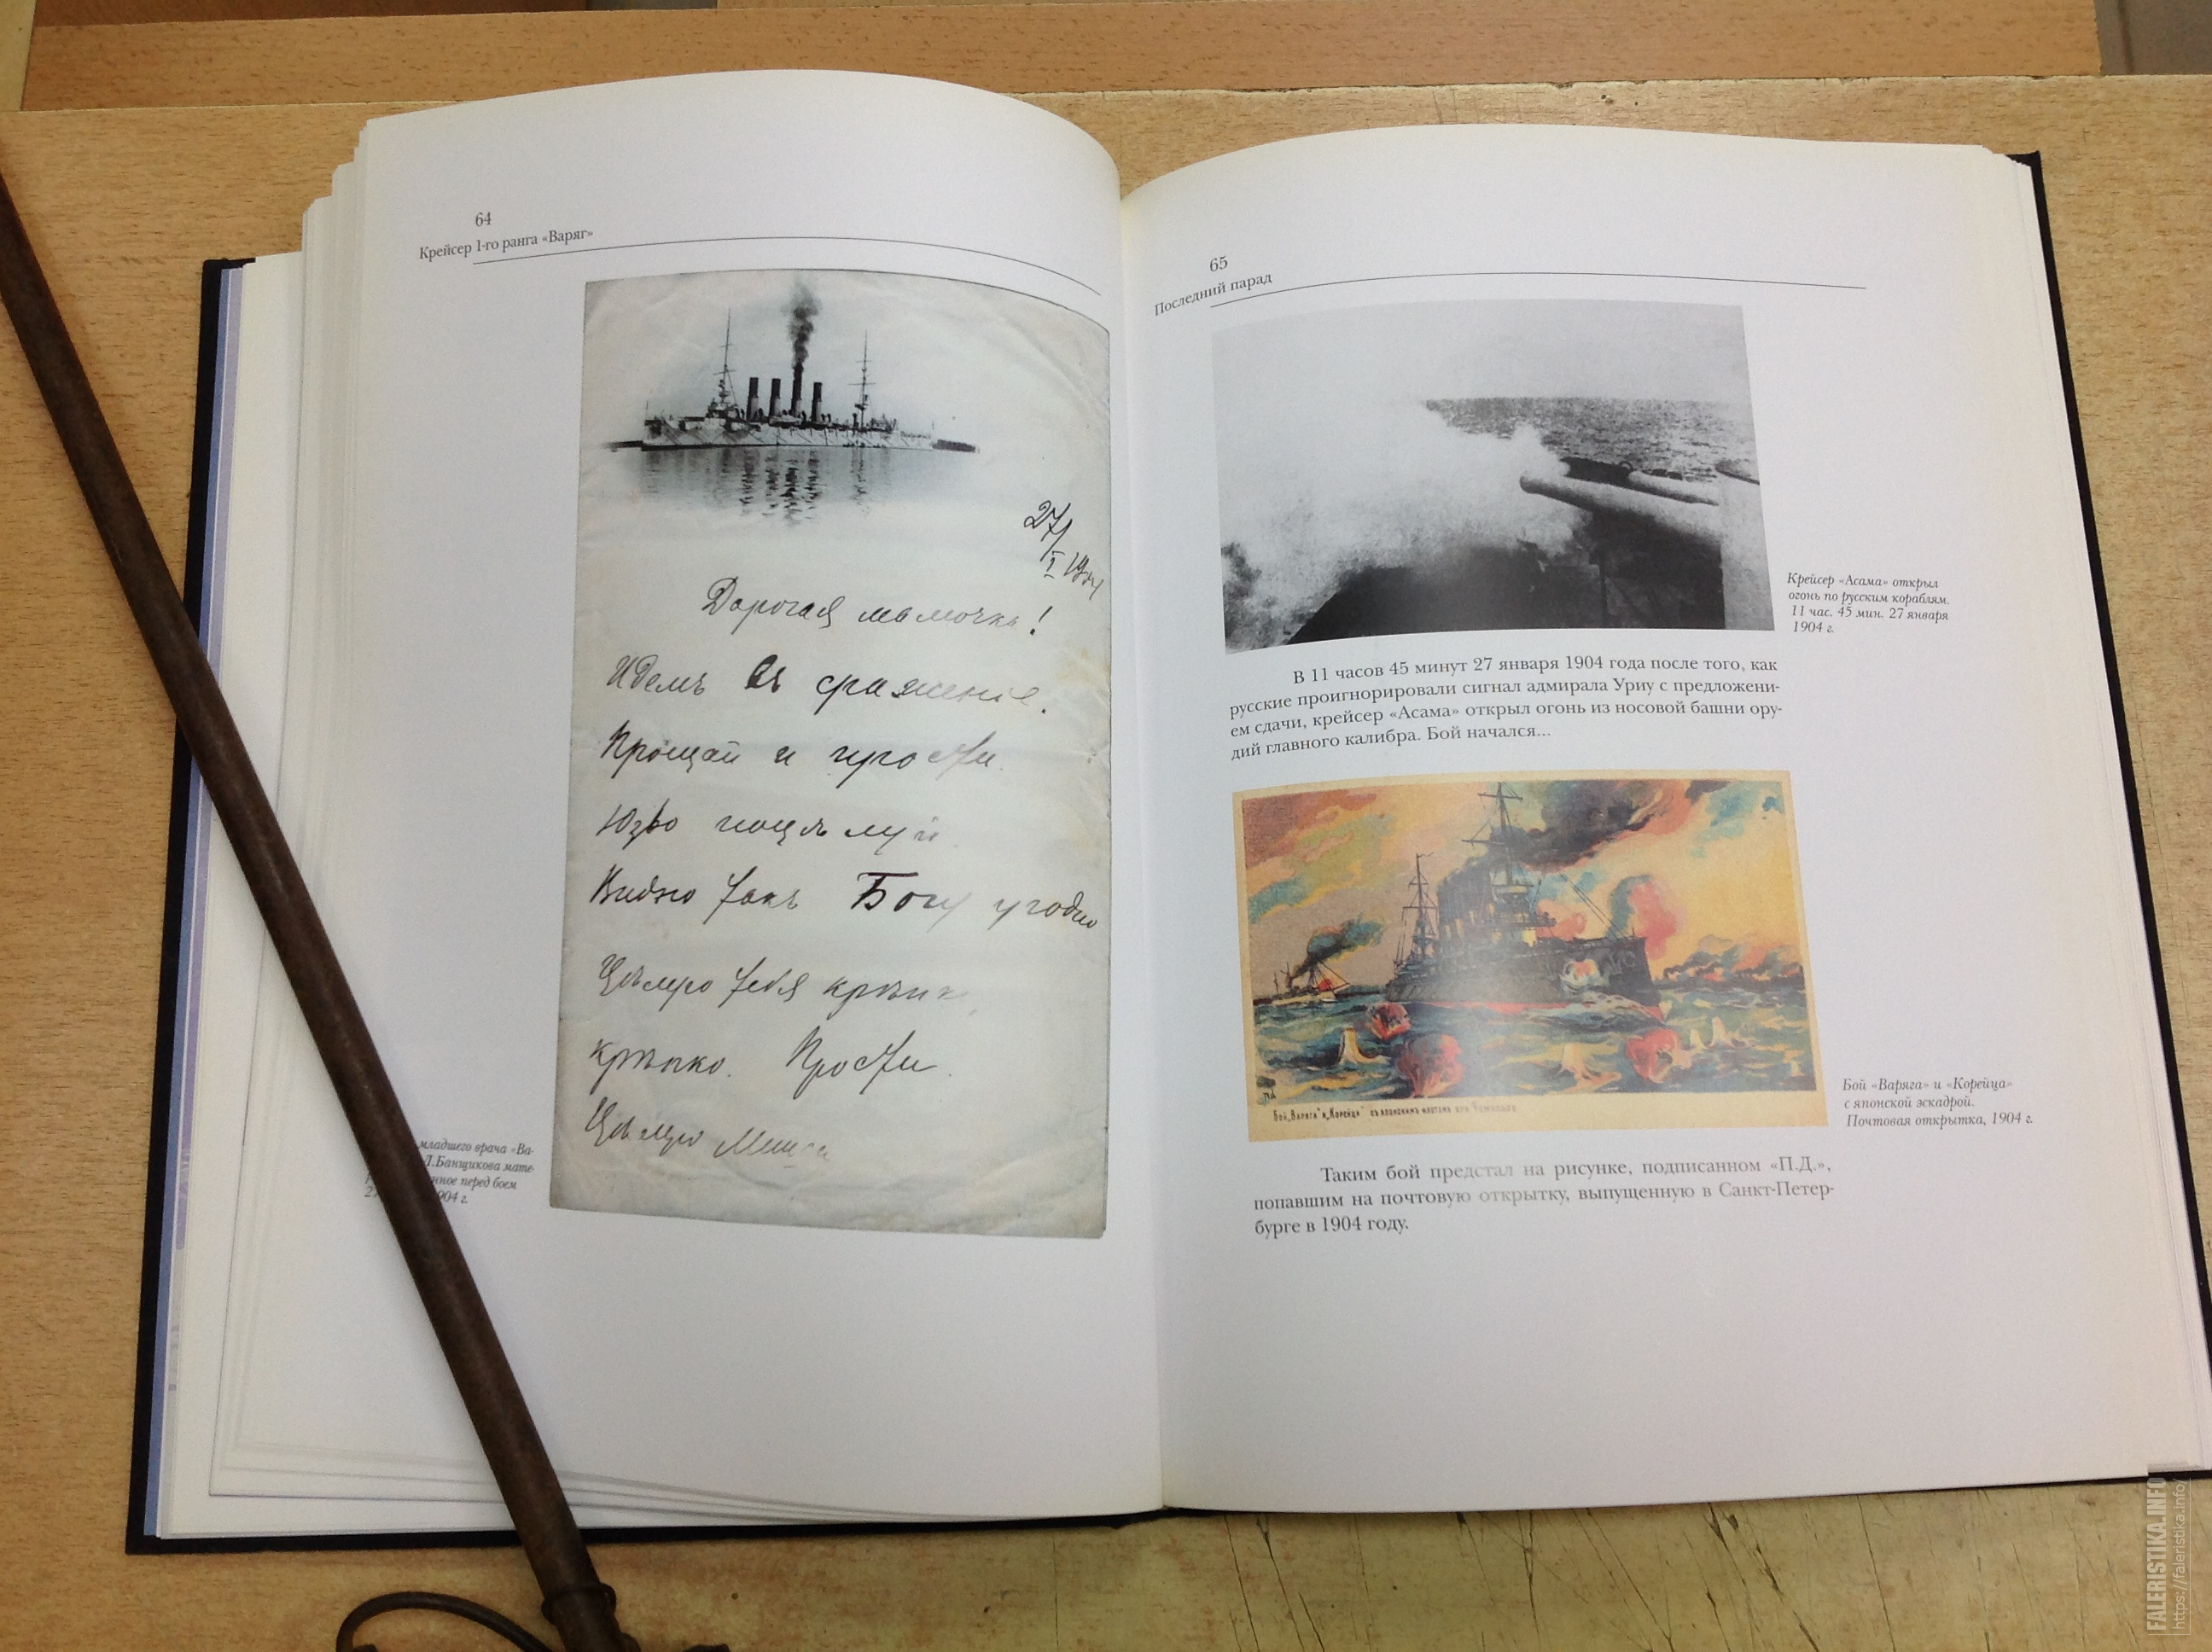 64
Крейсер 1-го ранга «Варяг»
27/I 1904
Дорогая мамочка!
Идемъ въ сраженіе.
Прощай и прости.
Юзю поцѣлуй
Видно такъ Богу угодно
Цѣлую тебя крѣпко,
крѣпко. Прости.
Цѣлую Миша
младшего врача «Ва-
Банщикова мате-
перед боем
1904 г.
65
Последний парад
Крейсер «Асама» открыл
огонь по русским кораблям.
11 час. 45 мин. 27 января
1904 г.
В 11 часов 45 минут 27 января 1904 года после того, как
русские проигнорировали сигнал адмирала Уриу с предложени-
ем сдачи, крейсер «Асама» открыл огонь из носовой башни ору-
дий главного калибра. Бой начался...
Бой „Варяга" и „Корейца" съ японскимъ флотомъ при Чемульпо
Бой «Варяга» и «Корейца»
с японской эскадрой.
Почтовая открытка, 1904 г.
Таким бой предстал на рисунке, подписанном «П.Д.»,
попавшим на почтовую открытку, выпущенную в Санкт-Петер-
бурге в 1904 году.
FALERISTIKA.INFO
https://faleristika.info/